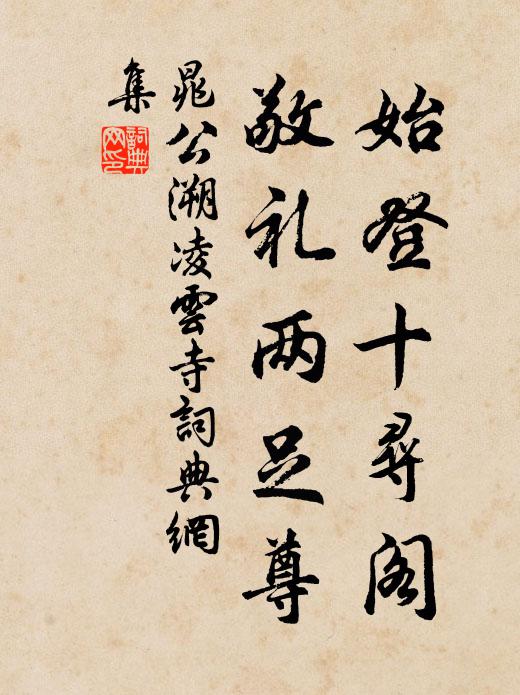 始登十尋阁
敬礼两足尊
晁公溯凌雲寺詞典網
集
詞典网印